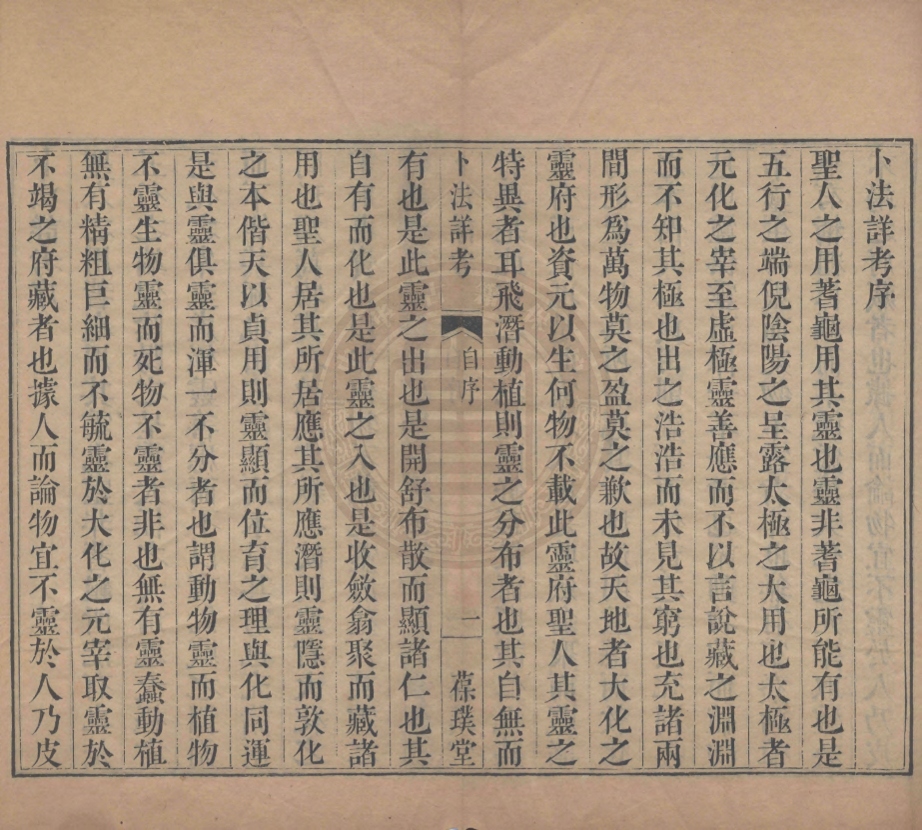 卜法詳考序
聖人之用蓍龜用其靈也靈非蓍龜所能有也是
五行之端倪陰陽之呈露太極之大用也太極者
元化之宰至虛極靈善應而不以言說藏之淵淵
而不知其極也出之浩浩而未見其窮也充諸兩
間形爲萬物莫之盈莫之歉也故天地者大化之
靈府也資元以生何物不載此靈府聖人其靈之
特異者耳飛潛動植則靈之分布者也其自無而
卜法詳考 自序 一 葆璞堂
有也是此靈之出也是開舒布散而顯諸仁也其
自有而化也是此靈之入也是收斂翕聚而藏諸
用也聖人居其所居應其所應潛則靈隱而敦化
之本偕天以貞用則靈顯而位育之理與化同運
是與靈俱靈而渾一不分者也謂動物靈而植物
不靈生物靈而死物不靈者非也無有靈蠢動植
無有精粗巨細而不毓靈於大化之元宰取靈於
不竭之府藏者也據人而論物宜不靈於人乃皮